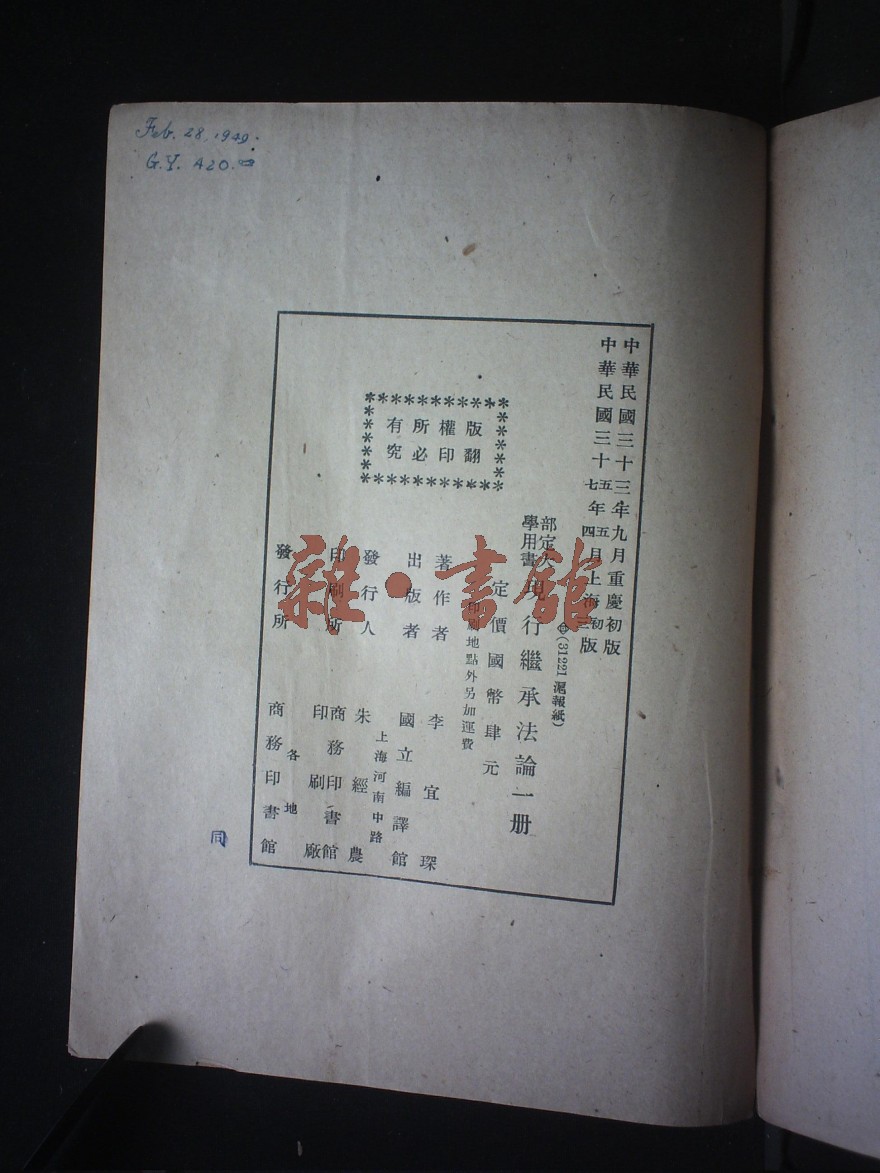 Feb. 28, 1949.
G.Y. 420.00
中華民國三十三年九月重慶初版
中華民國三十五年五月上海初版
七 四 三
㊥(31221滬報紙)
部定大學用書 現行繼承法論一册
定價國幣肆元
印刷地點外另加運費
版權所有
翻印必究
著作者 李宜琛
出版者 國立編譯館
上海河南中路
發行人 朱經農
印刷所 商務印書館印刷廠
各地
發行所 商務印書館
同
雜·書館